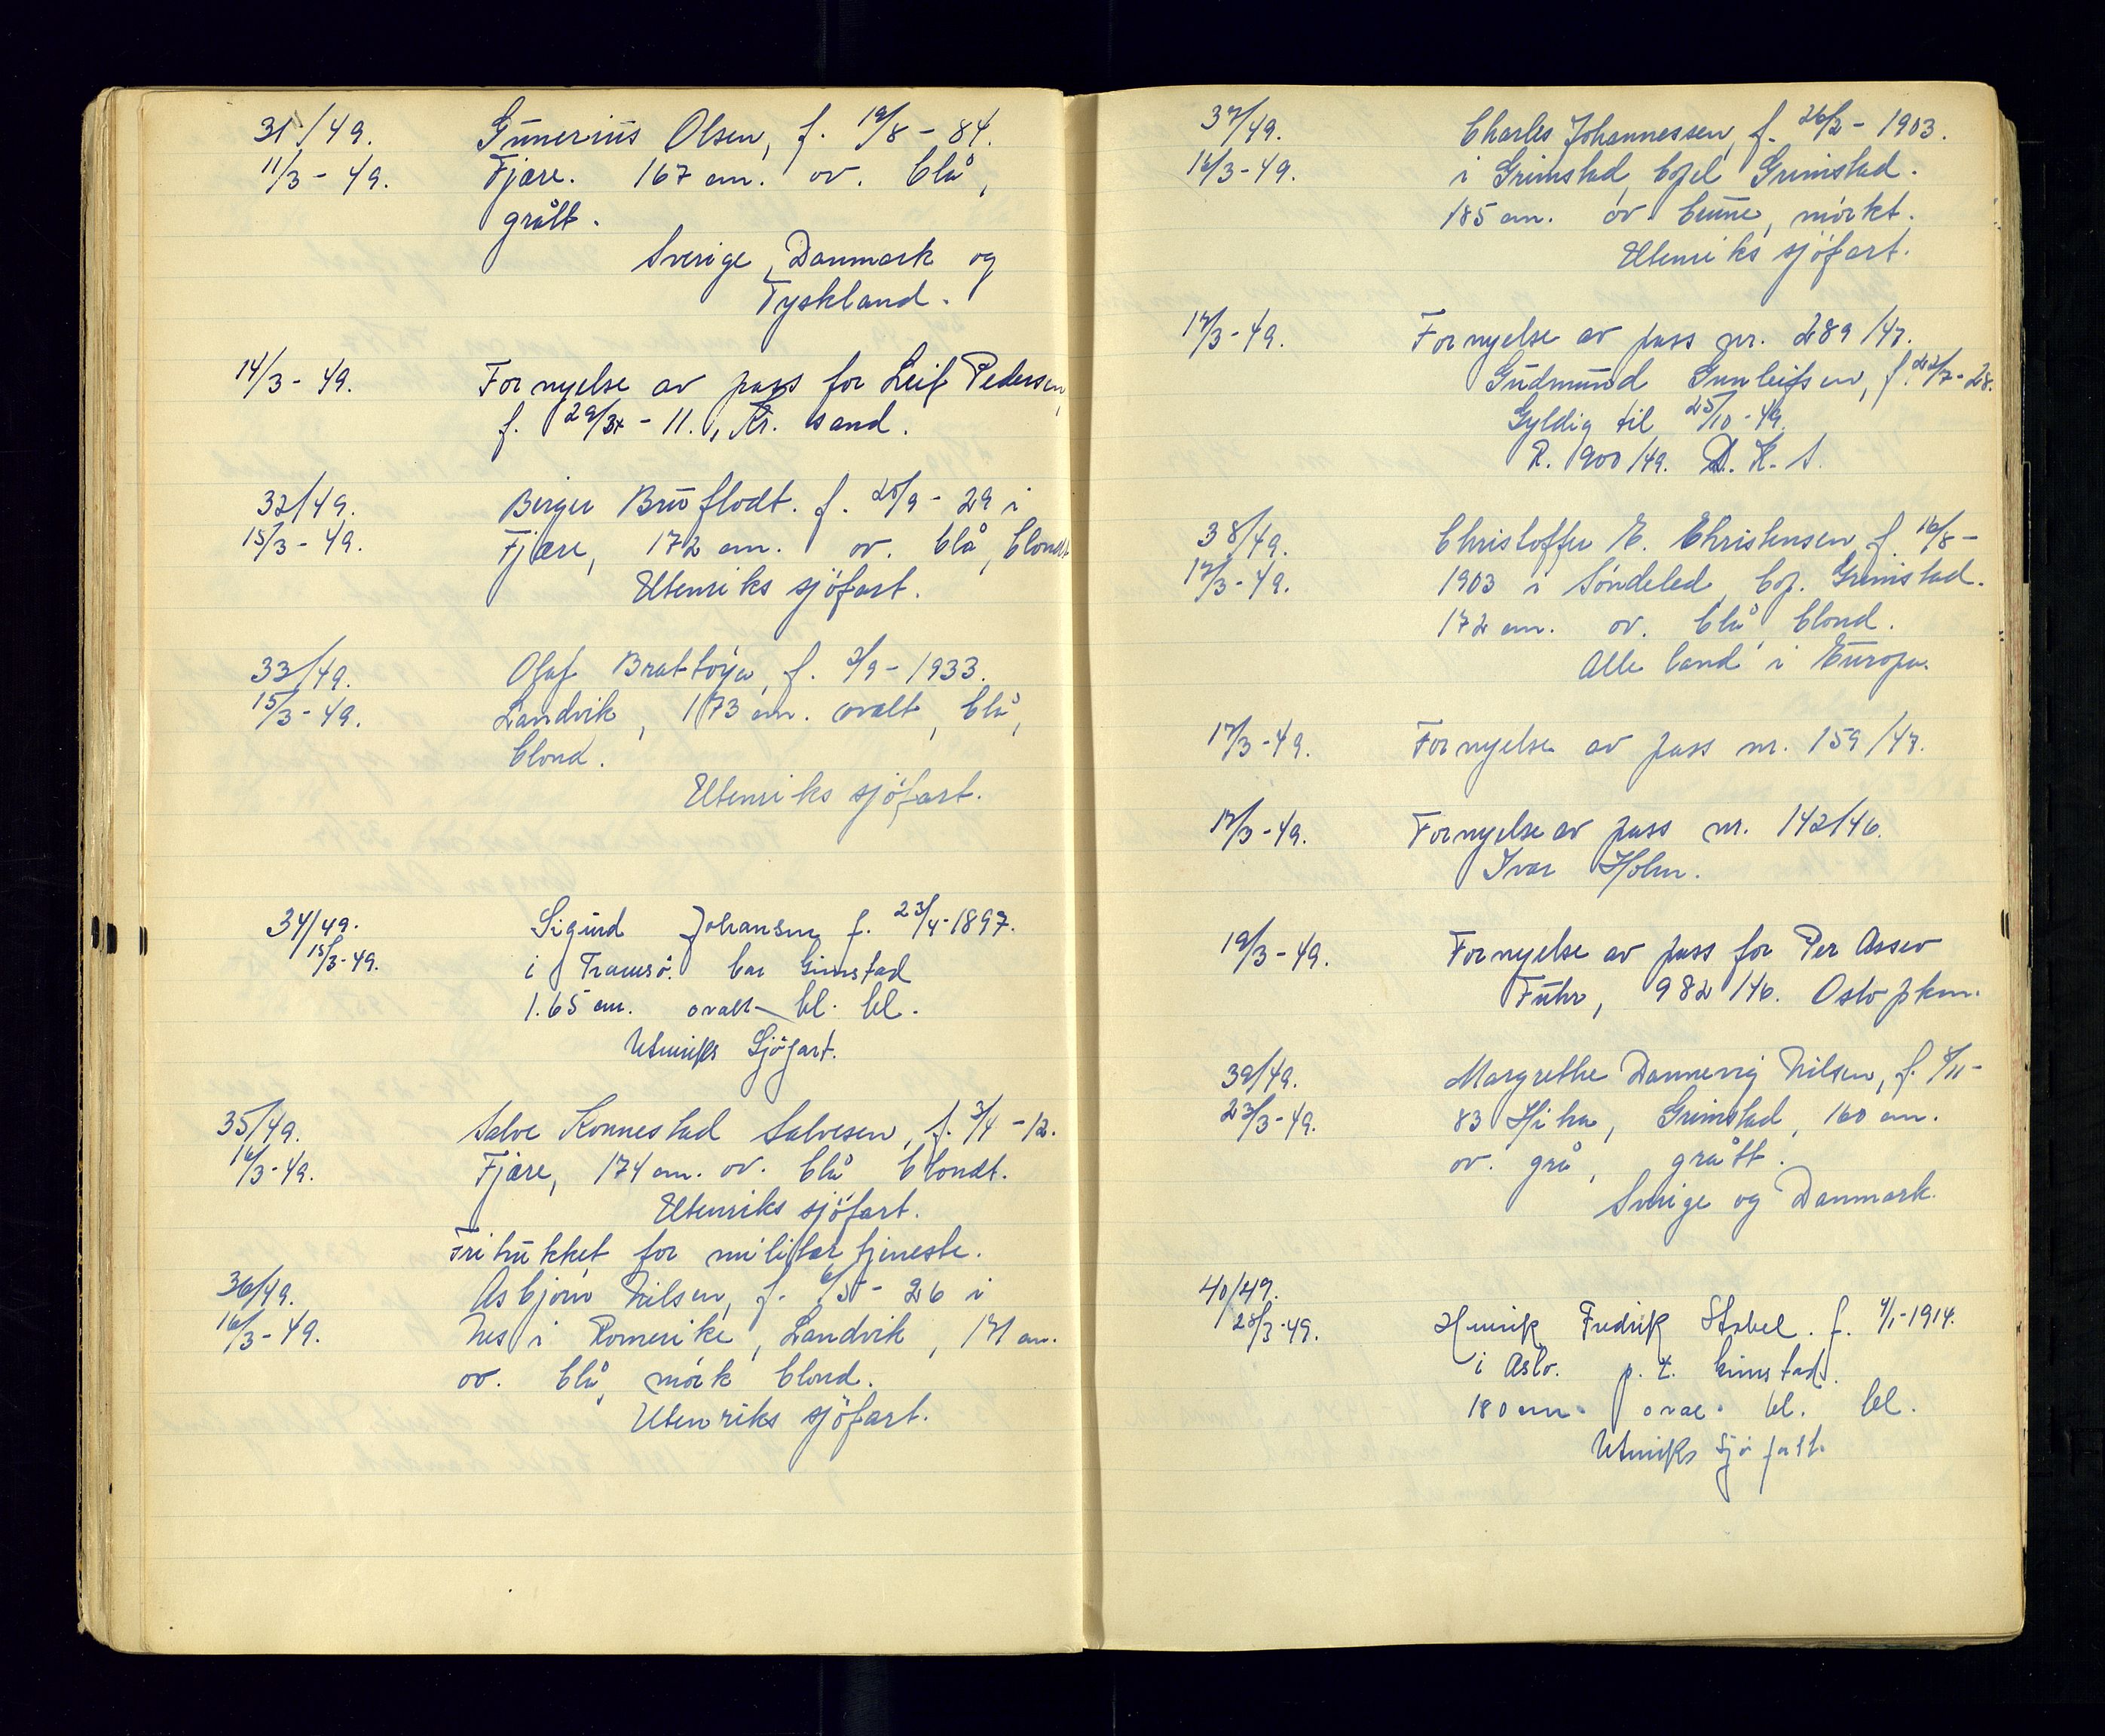 31/49. Gunerius Olsen, f. 19/8 - 84.
11/3 - 49. Fjære. 167 cm. ov. blå,
grått.
Sverige, Danmark og
Tyskland.
14/3 - 49. Fornyelse av pass for Leif Pedersen,
f. 29/3 - 11. i Kr. sand.
32/49. Birger Bruflodt. f. 25/9 - 29 i
15/3 - 49. Fjære, 172 cm. ov. blå, blondt
Utenriks sjöfart.
33/49. Olaf Brattöya, f. 2/9 - 1933.
15/3 - 49. Landvik, 173 cm. ovalt, blå,
blond.
Utenriks sjöfart.
34/49. Sigurd Johansen f. 23/4 - 1897.
15/3 - 49. i Tromsö. bor Grimstad
1.65 cm. ovalt - bl. bl.
Utenriks Sjöfart.
35/49. Salve Konnestad Salvesen, f. 3/4 - 12.
16/3 - 49. Fjære, 174 cm. ov. blå blondt.
Utenriks sjöfart.
Fritukket for militær tjeneste.
36/49. Asbjørn Nilsen, f. 6/5 - 26 i
16/3 - 49. Nes i Romerike, Landvik, 171 cm.
ov. blå, mörk blond.
Utenriks sjöfart.
37/49. Charles Johannessen, f. 26/2 - 1903.
16/3 - 49. i Grimstad, bopel Grimstad.
185 cm. ov. brune, mörkt.
Utenriks sjöfart.
17/3 - 49. Fornyelse av pass nr. 289/47.
Gudmund Gunleifsen, f. 22/7 - 28.
Gyldig til 25/10 - 49.
R. 1900/49. D. K. S.
38/49. Christoffer E. Christensen f. 16/8 -
17/3 - 49. 1903 i Söndeled, bop. Grimstad.
172 cm. ov. blå, blond.
Alle land i Europa.
17/3 - 49. Fornyelse av pass nr. 159/47.
17/3 - 49. Fornyelse av pass nr. 142/46.
Ivar Holm.
19/3 - 49. Fornyelse av pass for Per Assev
Fuhr, 982/46. Oslo pkm.
39/49. Margrethe Dannevig Nilsen, f. 8/11 -
23/3 - 49. 83 Grimstad, 160 cm.
ov. grå, grått.
Sverige og Danmark.
40/49.
28/3 - 49. Henrik Fredrik Stabel. f. 4/1 - 1914.
i Oslo. p. t. Grimstad.
180 cm. oval. bl. bl.
Utenriks Sjöfart.